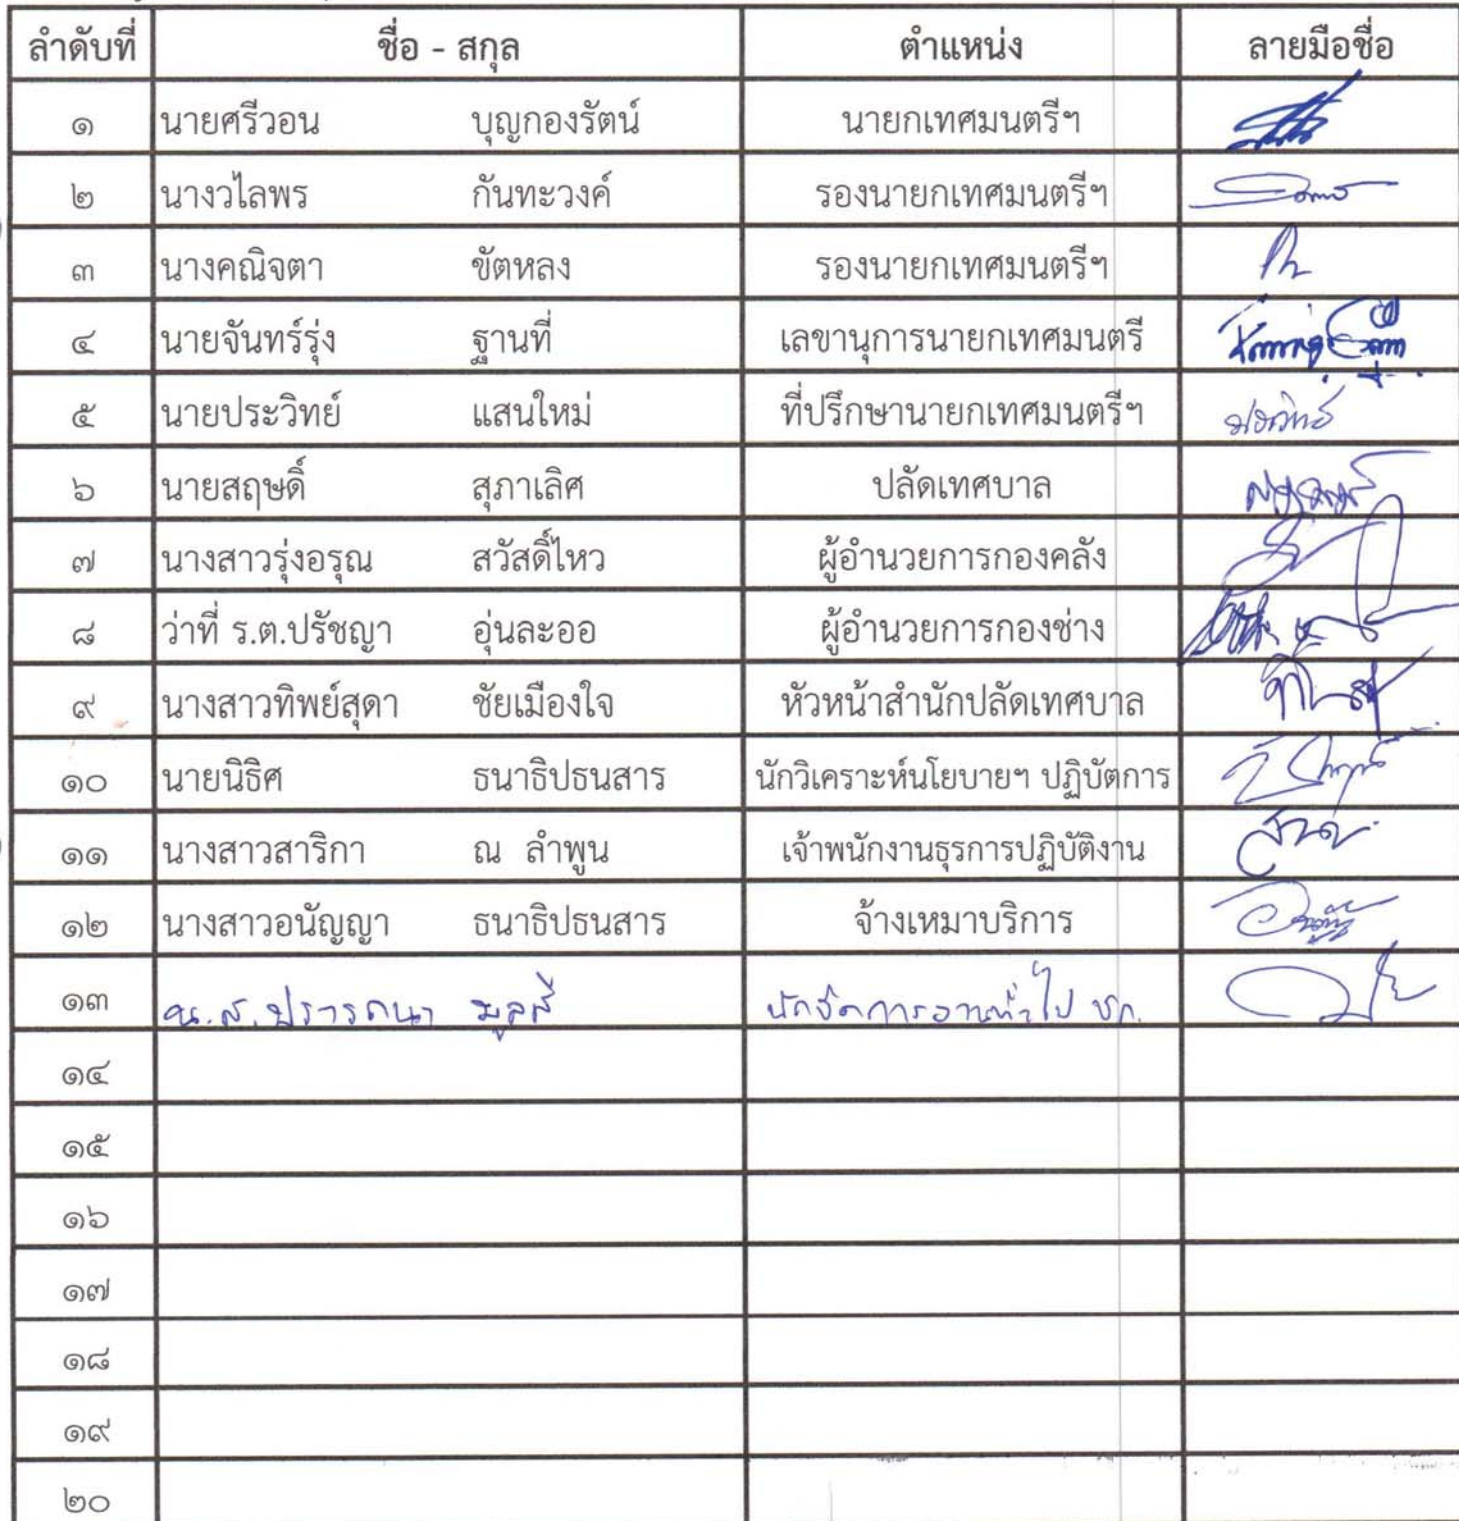 ลำดับที่ ชื่อ - สกุล ตำแหน่ง ลายมือชื่อ
๑ นายศรีวอน บุญกองรัตน์ นายกเทศมนตรีฯ
๒ นางวไลพร กันทะวงค์ รองนายกเทศมนตรีฯ
๓ นางคณิจตา ขัตหลง รองนายกเทศมนตรีฯ
๔ นายจันทร์รุ่ง ฐานที่ เลขานุการนายกเทศมนตรี
๕ นายประวิทย์ แสนใหม่ ที่ปรึกษานายกเทศมนตรีฯ ประวิทย์
๖ นายสฤษดิ์ สุภาเลิศ ปลัดเทศบาล
๗ นางสาวรุ่งอรุณ สวัสดิ์ไหว ผู้อำนวยการกองคลัง
๘ ว่าที่ ร.ต.ปรัชญา อุ่นละออ ผู้อำนวยการกองช่าง
๙ นางสาวทิพย์สุดา ชัยเมืองใจ หัวหน้าสำนักปลัดเทศบาล
๑๐ นายนิธิศ ธนาธิปธนสาร นักวิเคราะห์นโยบายฯ ปฏิบัตการ
๑๑ นางสาวสาริกา ณ ลำพูน เจ้าพนักงานธุรการปฏิบัติงาน
๑๒ นางสาวอนัญญา ธนาธิปธนสาร จ้างเหมาบริการ
๑๓ น.ส.ปรารถนา มูลสี นักจัดการงานทั่วไป ชก.
๑๔
๑๕
๑๖
๑๗
๑๘
๑๙
๒๐